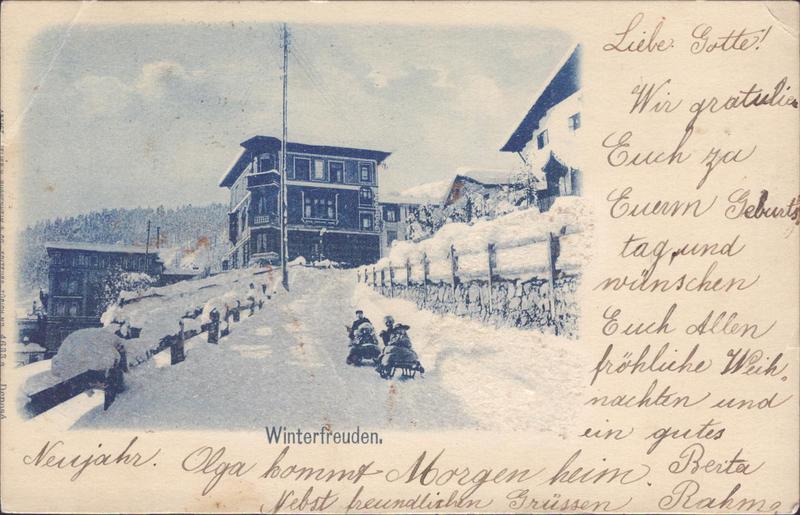 Liebe Gotte!
Wir gratulie
Euch za
Euerm Geburts
tag, und
wünschen
Euch Allen
fröhliche Weih-
nachten und
ein gutes
Neujahr. Olga kommt Morgen heim. Berta
Nebst freundlichen Grüssen Rahm
Winterfreuden.
4633 Deposé